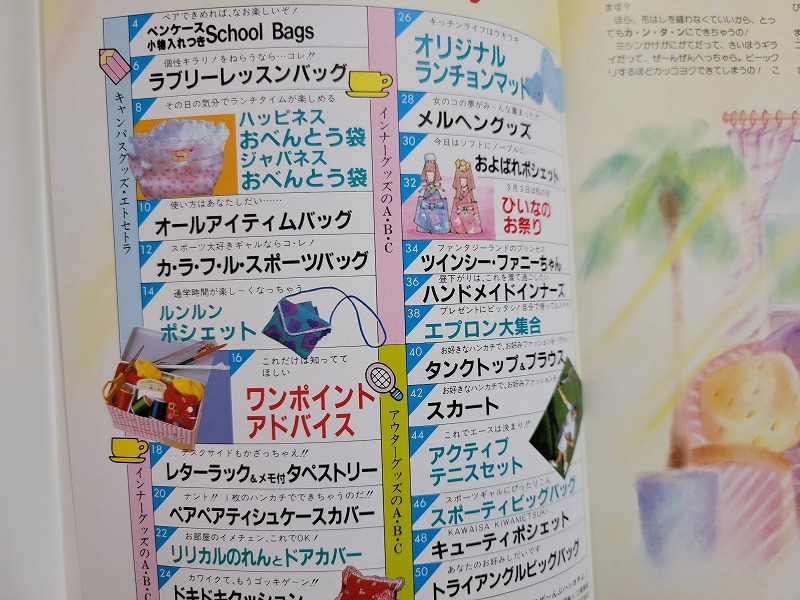 4
ペアできめれば、なお楽しいぞ!
ペンケース
小物入れつきSchool Bags
6
個性キラリ!をねらうなら…コレ!!
ラブリーレッスンバッグ
8
その日の気分でランチタイムが楽しめる
ハッピネス
おべんとう袋
ジャパネス
おべんとう袋
10
使い方はあなたしだい……
オールアイティムバッグ
12
スポーツ大好きギャルならコ・レ!
カ・ラ・フ・ル・スポーツバッグ
14
通学時間が楽し〜くなっちゃう
ルンルン
ポシェット
16
これだけは知ってて
ほしい
ワンポイント
アドバイス
18
デスクサイドもかざっちゃえ!!
レターラック&メモ付タペストリー
20
ナント!! 1枚のハンカチでできちゃうのだ!!
ペアペアティシュケースカバー
22
お部屋のイメチェン、これでOK!
リリカルのれんとドアカバー
24
カワイクて、もうゴッキゲーン!!
ドキドキクッション
キャンバスグッズ・エトセトラ
インナーグッズのA・B・C
26
キッチンライフはウキウキ
オリジナル
ランチョンマット
28
女のコの夢がみ〜んな集まった!!
メルヘングッズ
30
今日はソフトにノーブルに…
およばれポシェット
32
3月3日は私の日
ひいなの
お祭り
34
ファンタジーランドのプリンセス
ツインシー・ファニーちゃん
36
昼下がりは、これを着て過ごしたい
ハンドメイドインナーズ
38
プレゼントにピッタシ!自分で使っても
エプロン大集合
40
お好きなハンカチで、お好みファッションを
タンクトップ&ブラウス
42
お好きなハンカチで、お好みファッション
スカート
44
これでエースは決まり!!
アクティブ
テニスセット
46
スポーツギャルにぴったりこん
スポーティビッグバッグ
48
KAWAISA KIWAMETSUKI
キューティポシェット
50
あなたのお好みしだいです
トライアングルビッグバッグ
インナーグッズのA・B・C
アウターグッズのA・B・C
ます?
ほら、布はしを縫わなくていいから、とっ
てもカ・ン・タ・ンにできちゃうの!
ミシンかけがにがてだって、さいほうギラ
イだって、ぜ〜んぜんへっちゃら。ビーック
リするほどカッコヨクできてしまうの! こ